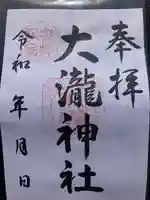 奉拝
大瀧神社
令和 年 月 日